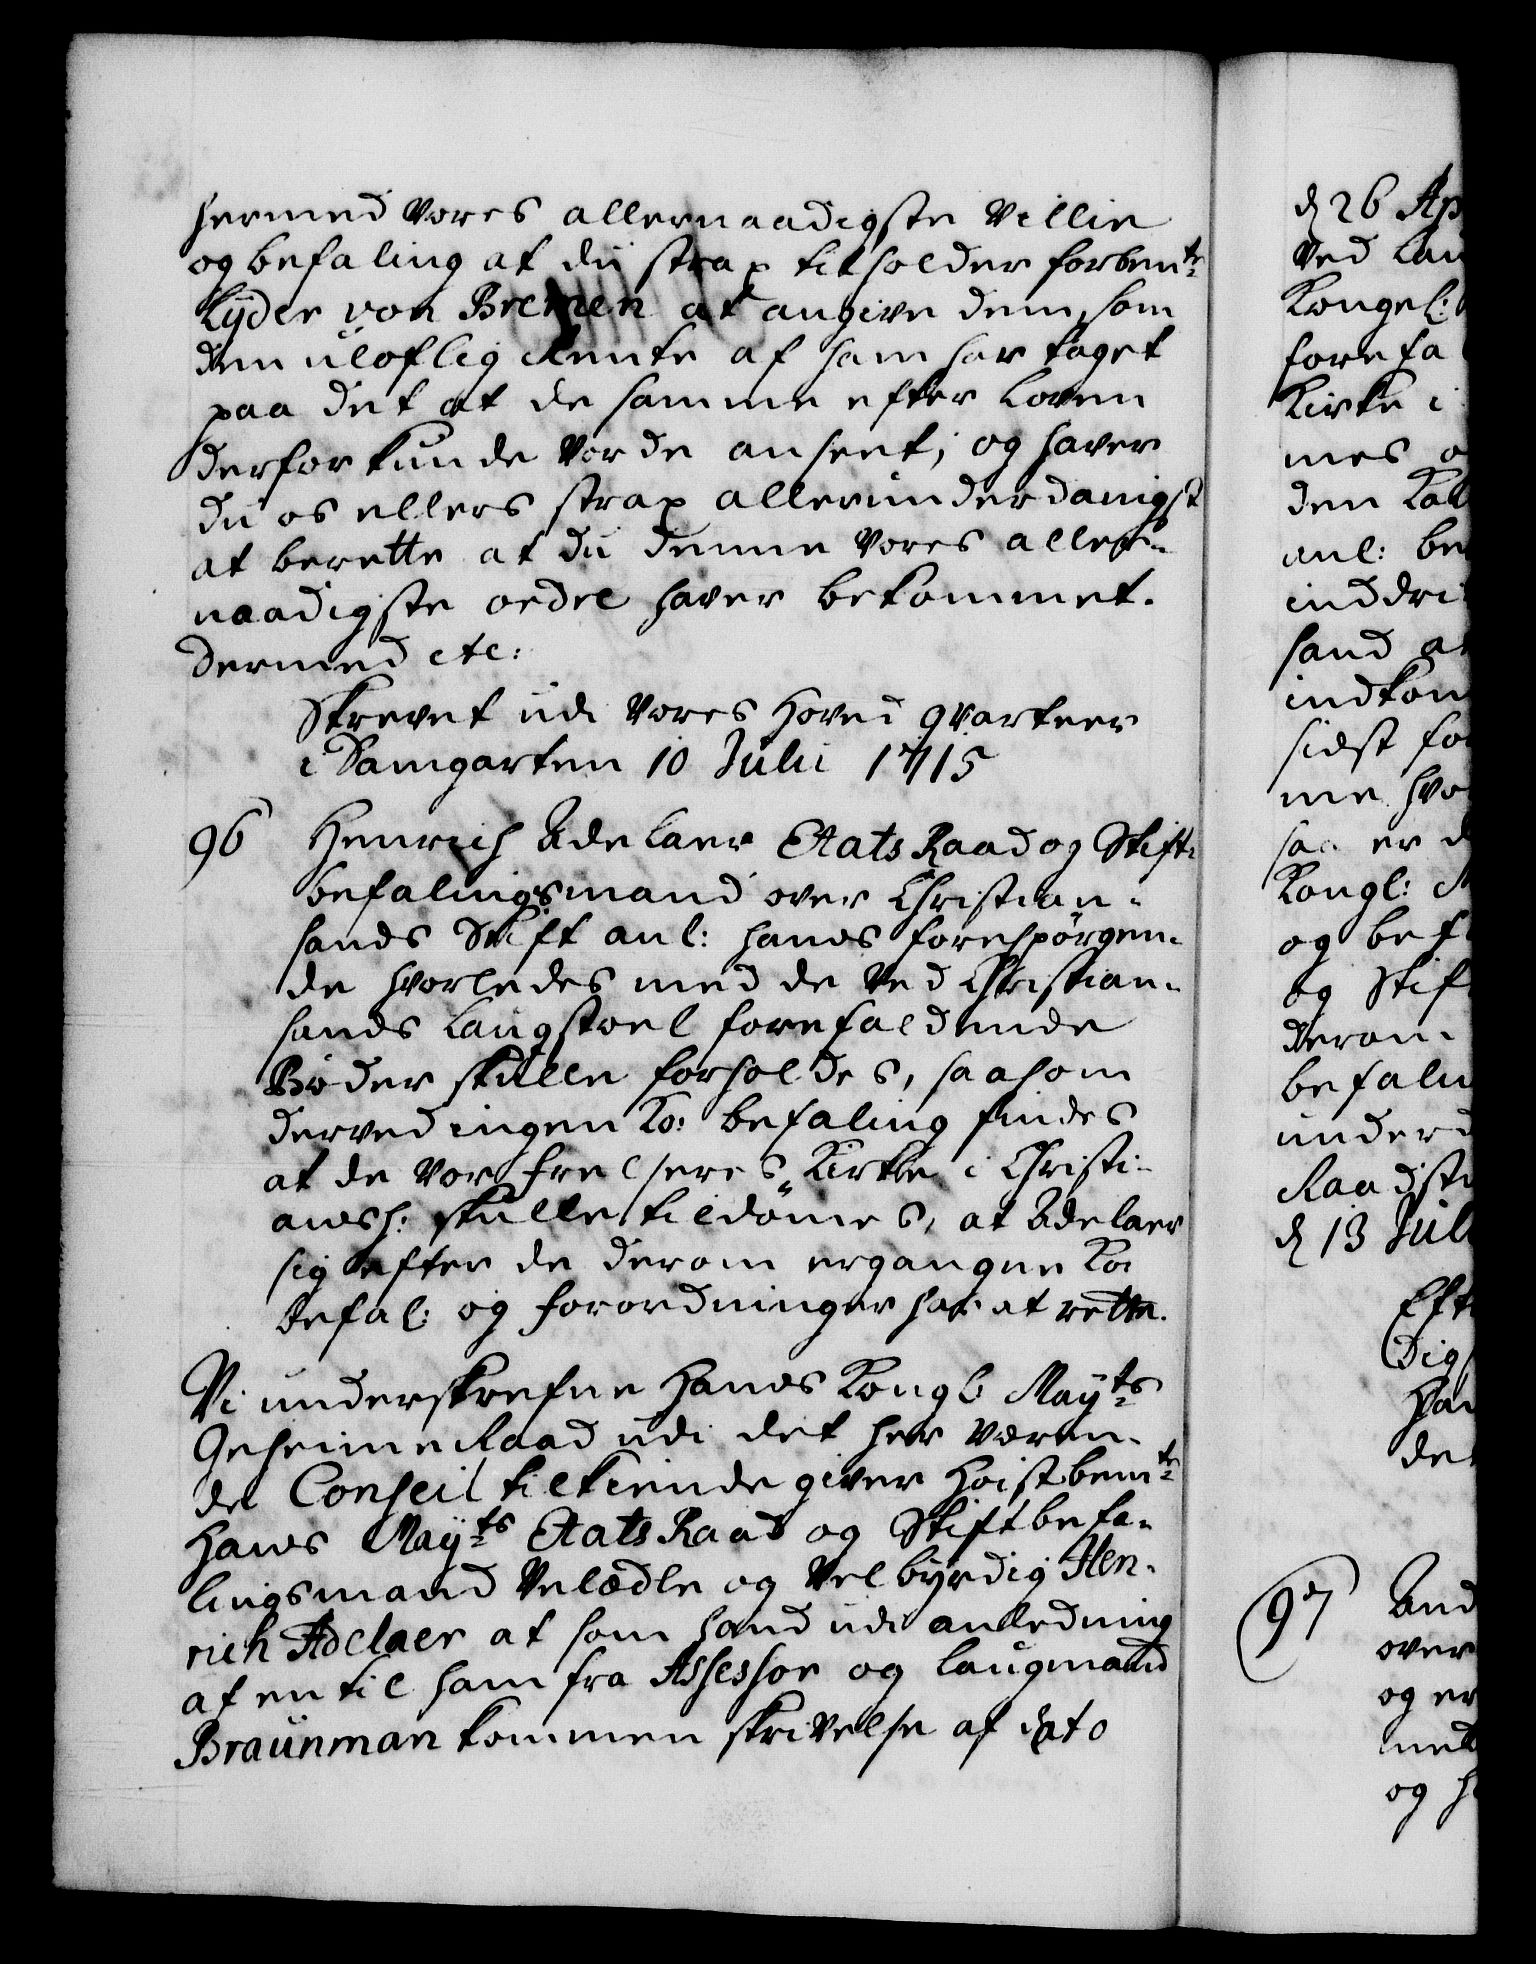 hermed Vores allernaadigste Villie
og befaling at du strax tilholder forben:te
Lyder von Bremen at angive dem, som
den uloflig Rente af ham har taget
paa det at de samme efter Loven
derfor kunde Vorde anseet, og haver
du os ellers strax allerunderdanigst
at berette at du denne Vores aller-
naadigste ordre haver bekommet.
Dermed etc:
Skrevet udi Vores Hoved qvarteer
i Damgarten 10 Julii 1715
96 Henrich Adelaer Etats Raad og Stift-
befalingsmand over Christian-
sands Stift anl: hans forespörgen-
de hvorledes med de Ved Christian-
sands Laugstoel forefaldende
Bøder skulle forholdes, saasom
derved ingen Ko: befaling findes
at de Vor frelseres Kirke i Christi-
ands: skulle tildömes, at Adelaer
sig efter de derom ergangne Ko:
befal: og forordninger har at rette.
Vi underskrefne Hans Kongl May:ts
Geheime Raad udi det her væren-
de Conseil tilkiende giver Höistbem:te
Hans May:ts Etats Raad og Stiftbefa-
lingsmand Velædle og Velbyrdig Hen-
rich Adelaer at som hand udi anledning
af en til ham fra Assessor og Laugmand
Braunman kommen skrivelse af dato
d 26 Ap
Ved Lau
Kongel:
forefa
Kirke i
mes o
den Kal
anl: be
inddri
hand at
indkom
sidst fo
me hvo
saa er d
Kongl: M
og bef
og Stif
derom-
befalin
underd
Raadst
d 13 Jul
Eft
Dig
Han
det
97 And
over
og er
med
og h